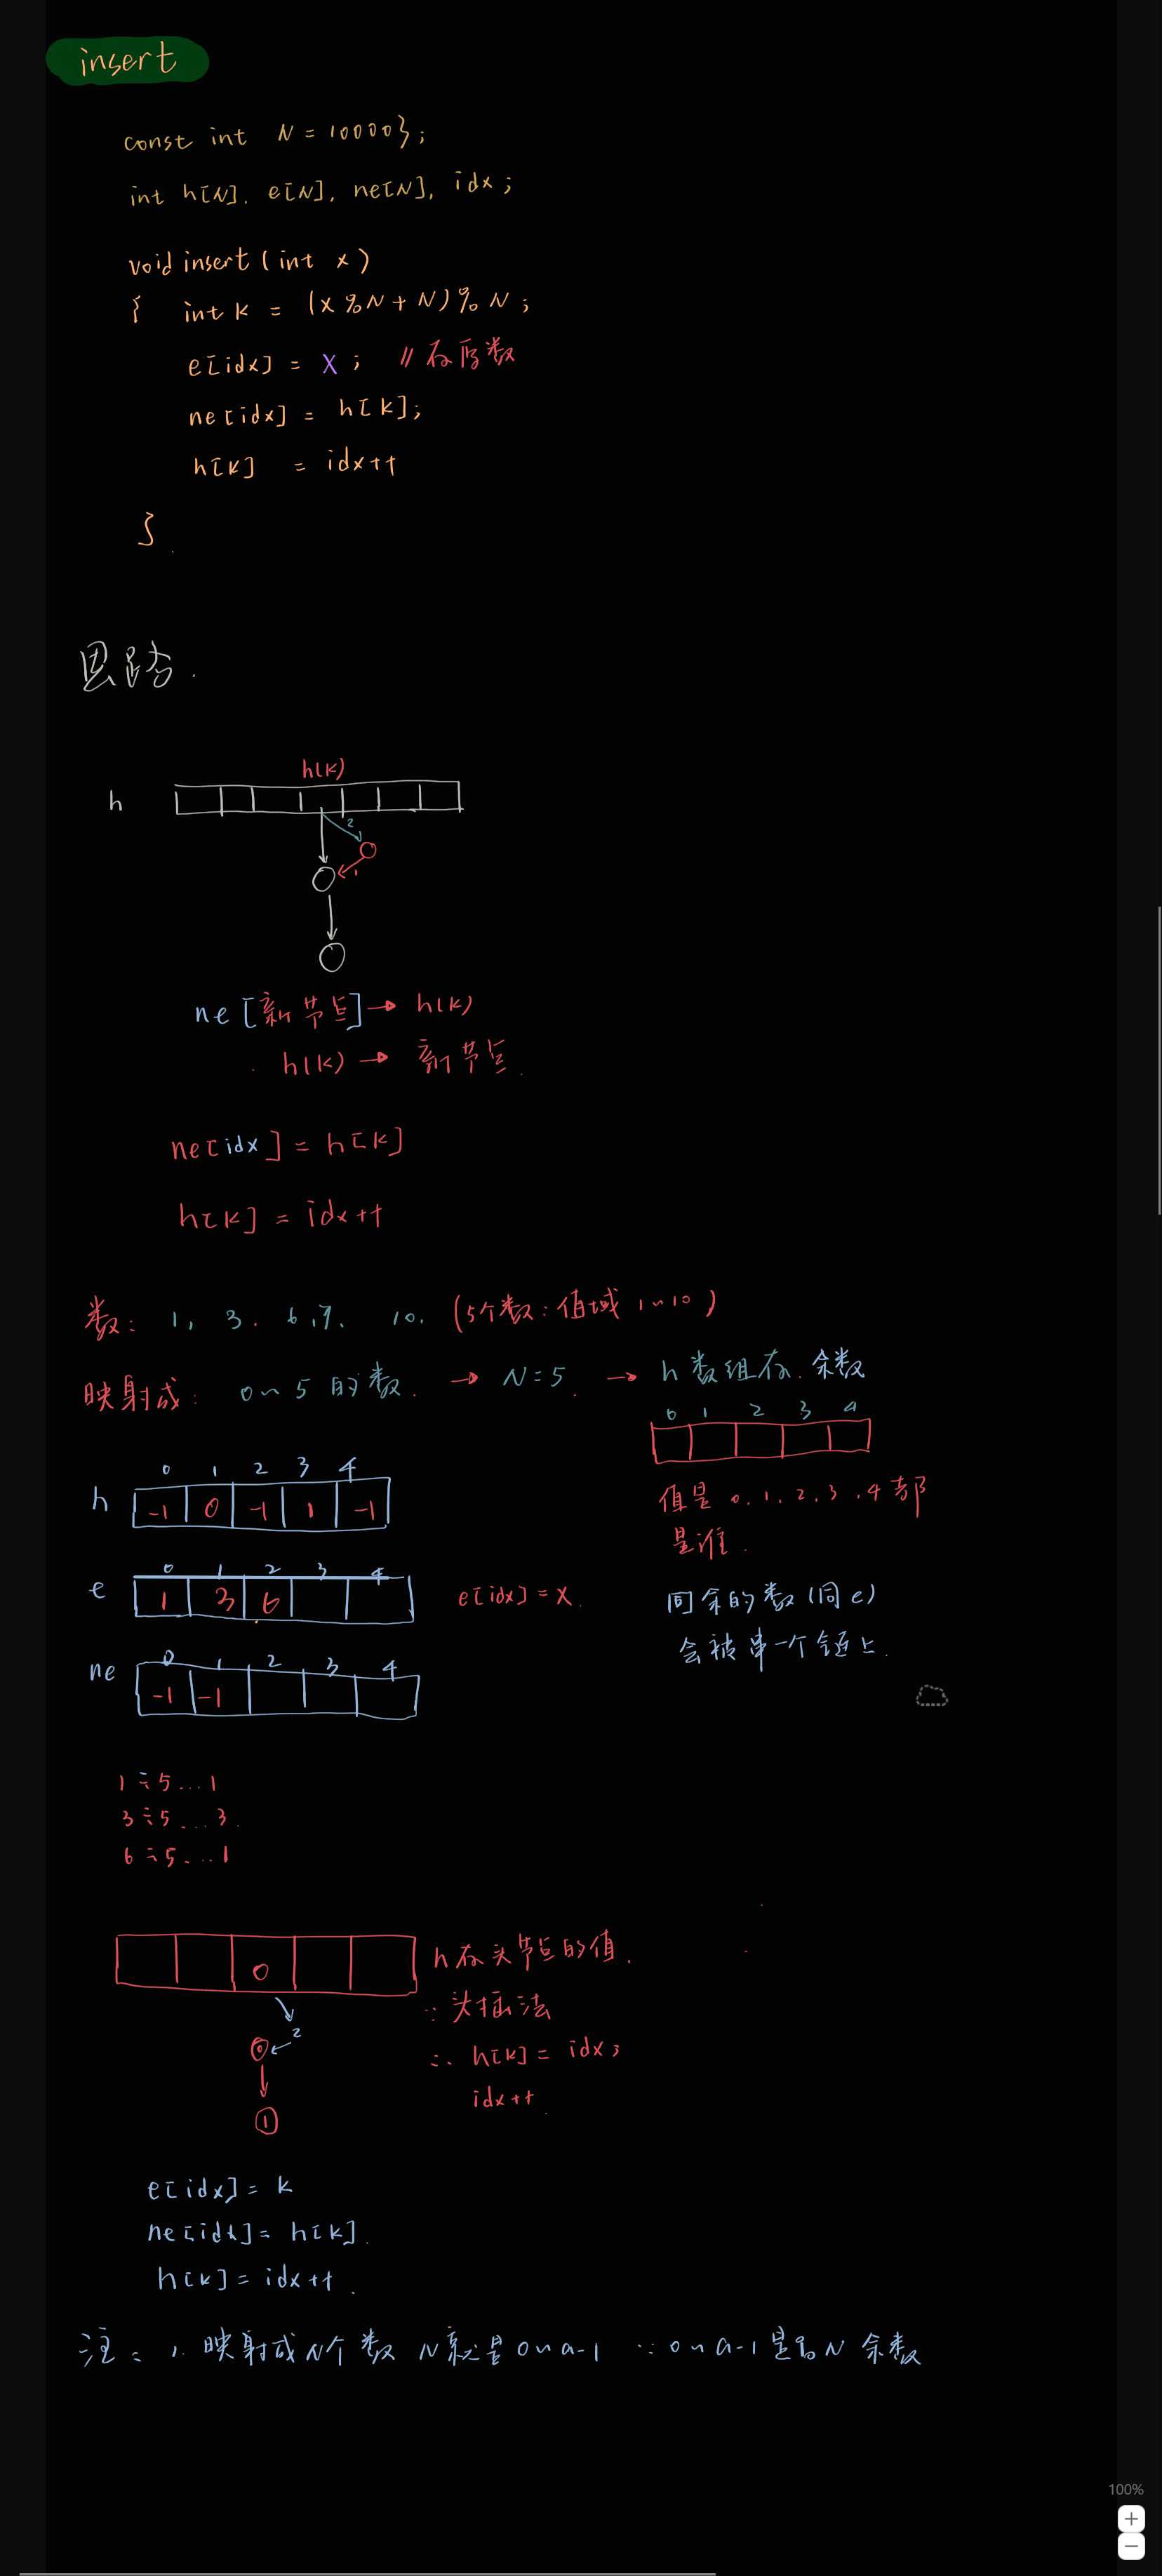 insert
const int N = 100003;
int h[N]. e[N], ne[N], idx;
void insert(int x)
{ int k = (x%N+N)%N;
e[idx] = x; //存原数
ne[idx] = h[k];
h[k] = idx++
}.
思路.
h(k)
h
2
1
ne[新节点]→h(k)
h(k)→新节点.
ne[idx]=h[k]
h[k]=idx++
数: 1, 3. 6,7. 10. (5个数:值域1~10)
映射成: 0~5的数. → N=5. → h数组存.余数
0 1 2 3 4
0 1 2 3 4
h -1 0 -1 1 -1
值是 0.1.2.3.4都
是谁.
0 1 2 3 4
e 1 3 6
e[idx]=x.
同余的数(同e)
会被串一个链上.
0 1 2 3 4
ne -1 -1
1÷5...1
3÷5...3.
6÷5...1
0
h存头节点的值.
∵头插法
2
0
∴ h[k]=idx;
idx++.
1
e[idx]=k
ne[idx]=h[k].
h[k]=idx++.
注: 1. 映射成N个数 N就是0~a-1 ∵0~a-1是%N余数
100%